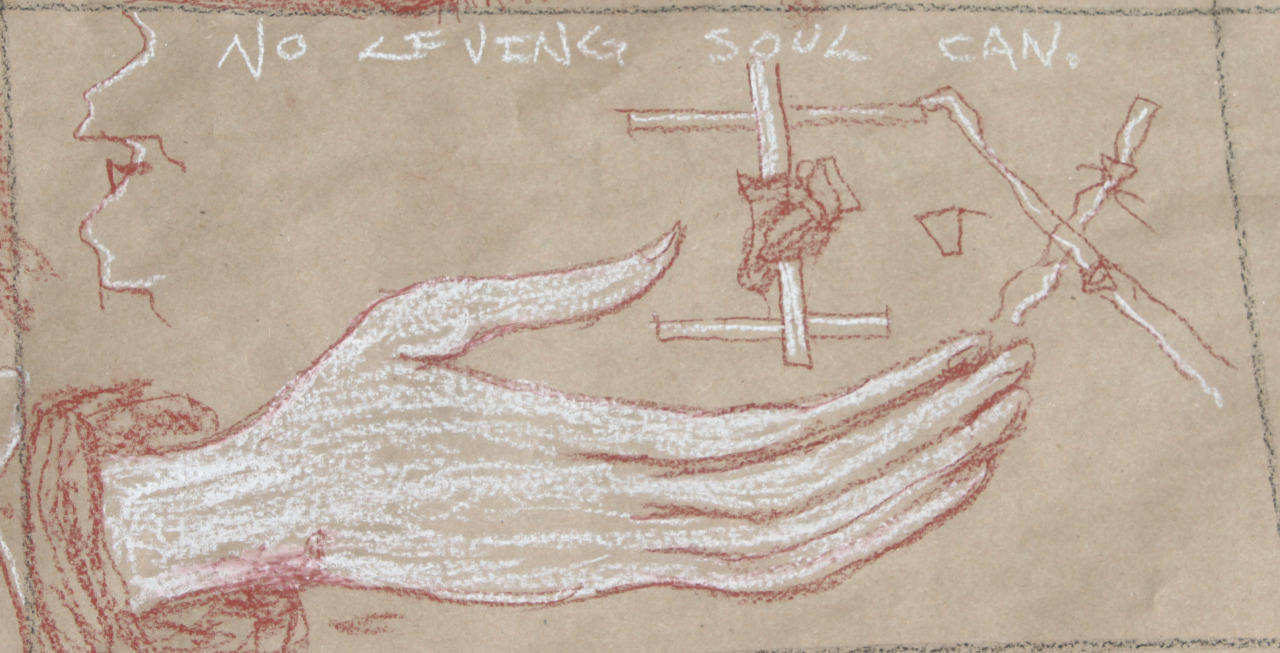 NO LIVING SOUL CAN.
FIX